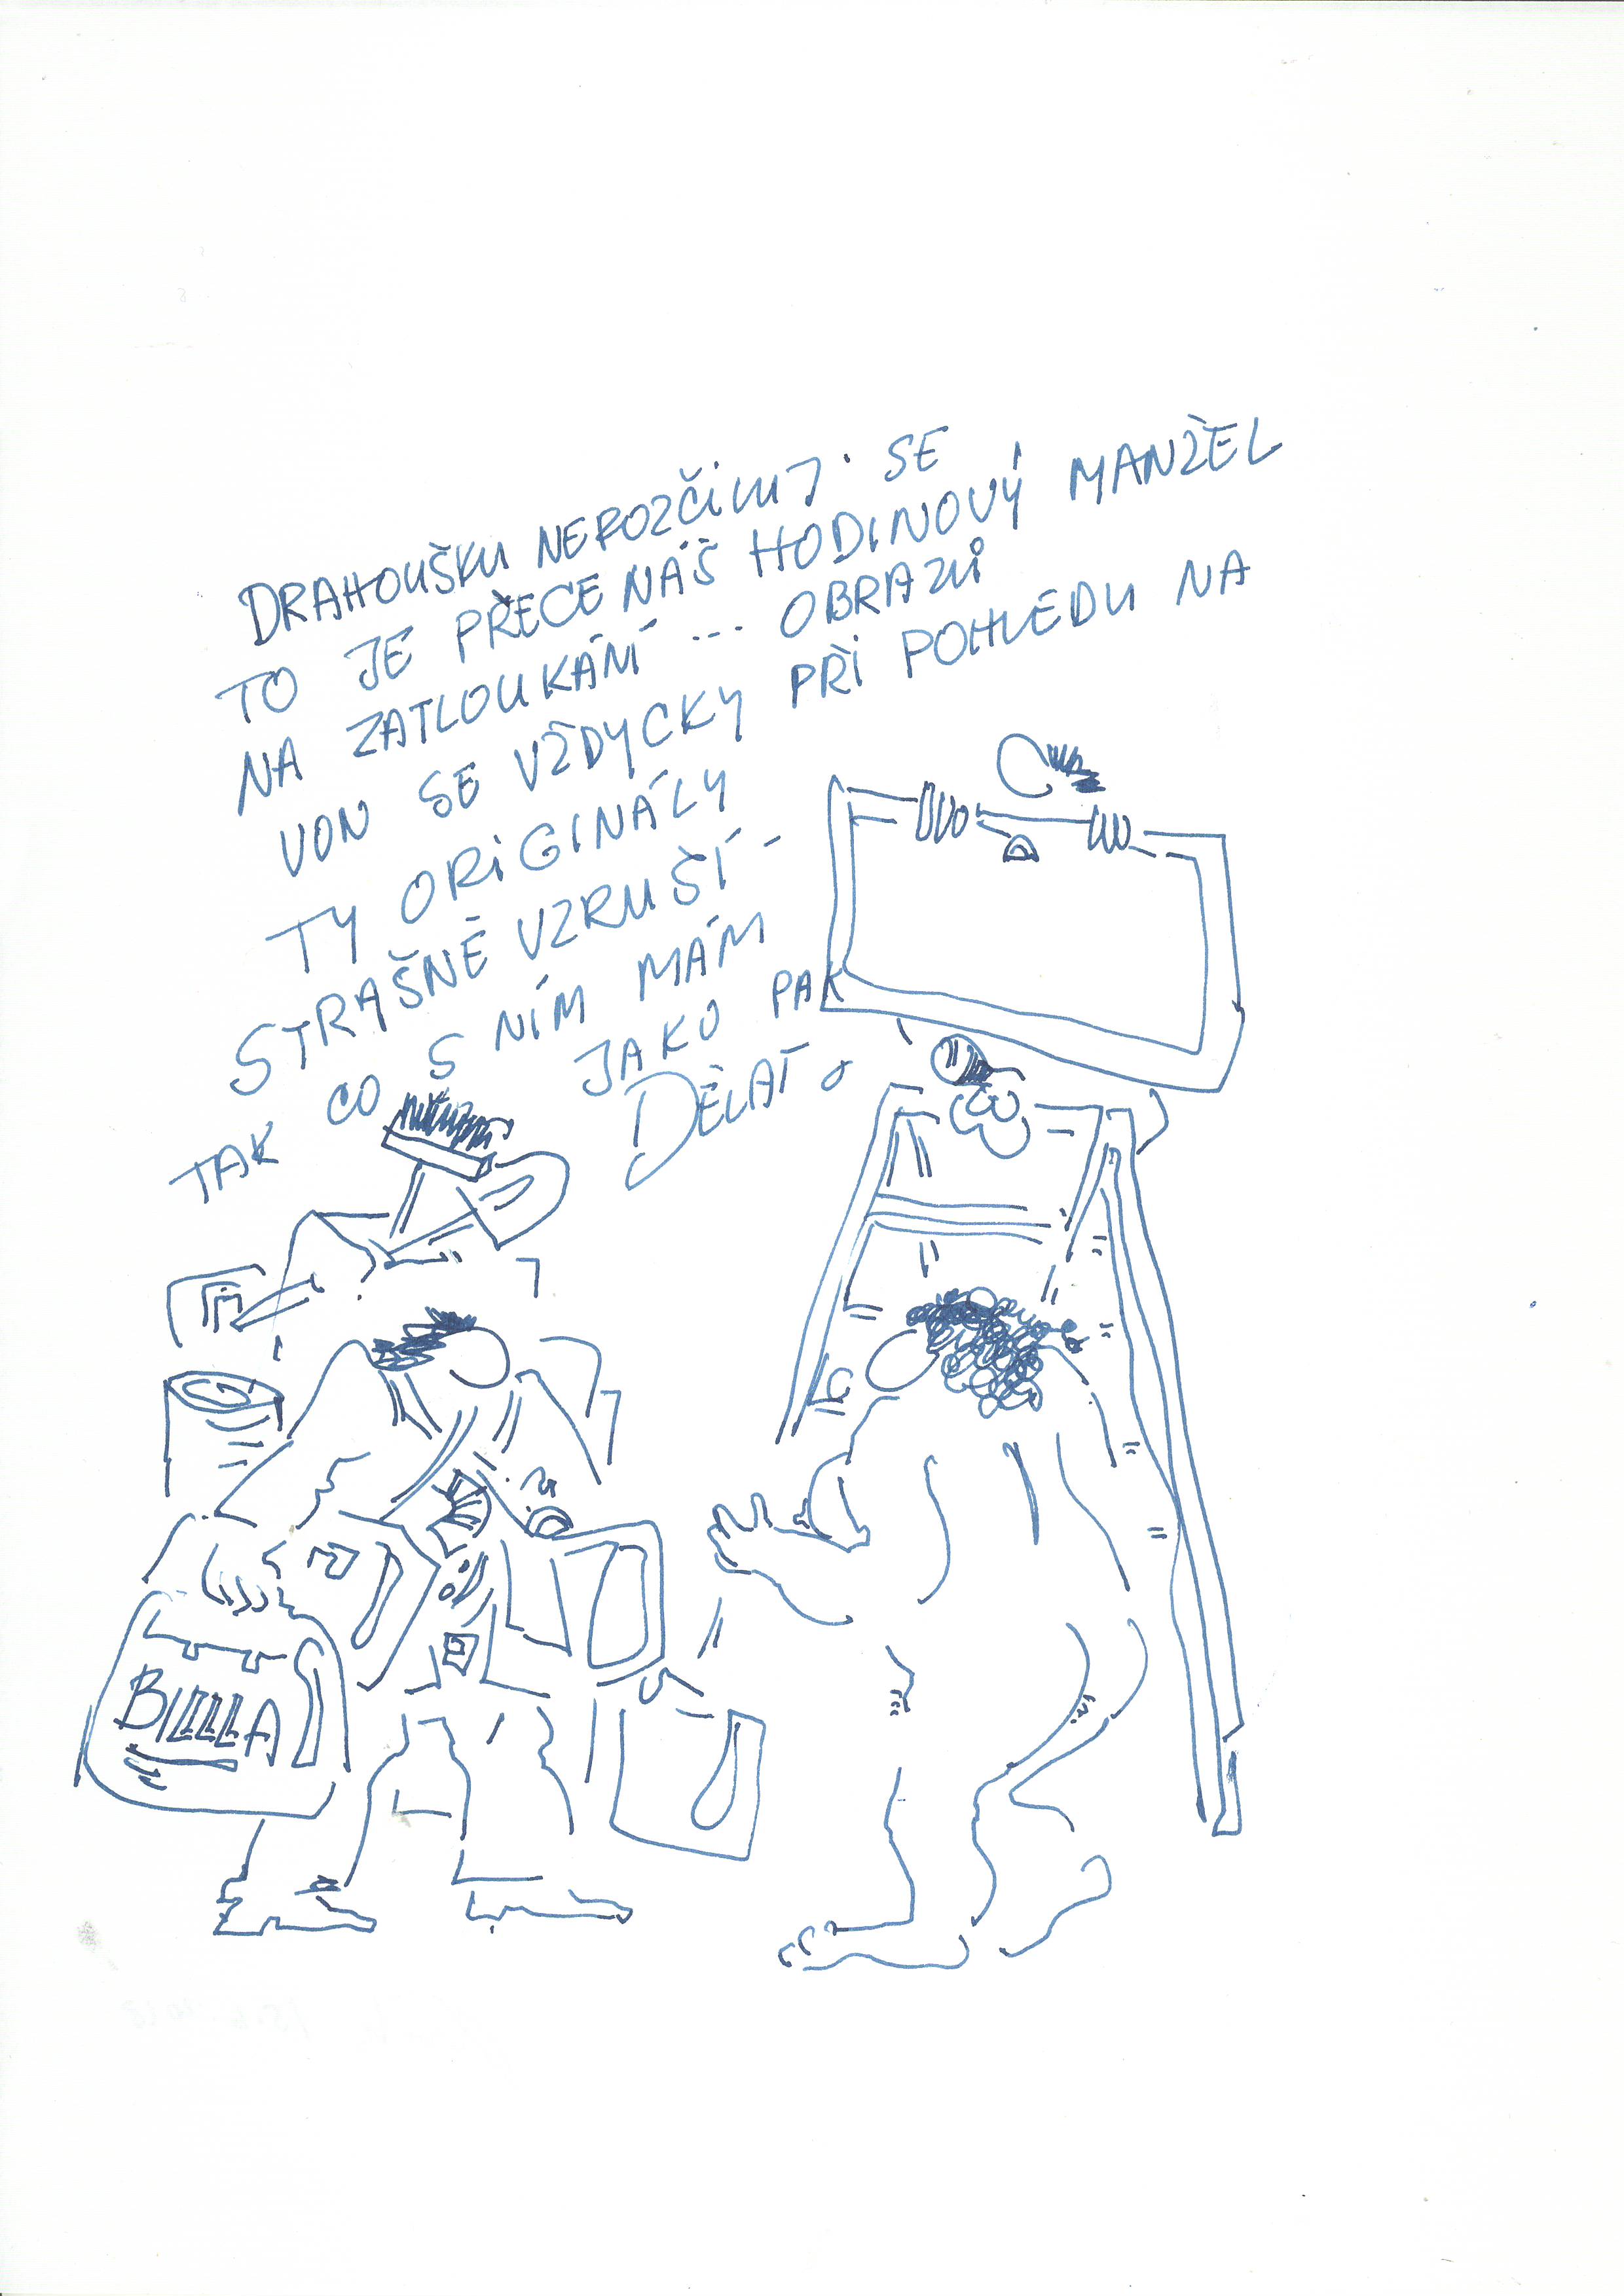 DRAHOUŠKU NEROZČILUJ SE
TO JE PŘECE NÁŠ HODINOVÝ MANŽEL
NA ZATLOUKÁNÍ --- OBRAZŮ
VON SE VŽDYCKY PŘI POHLEDU NA
TY ORIGINÁLY
STRAŠNĚ VZRUŠÍ -
TAK CO S NÍM MÁM
JAKO PAK
DĚLAT
BILLLLA